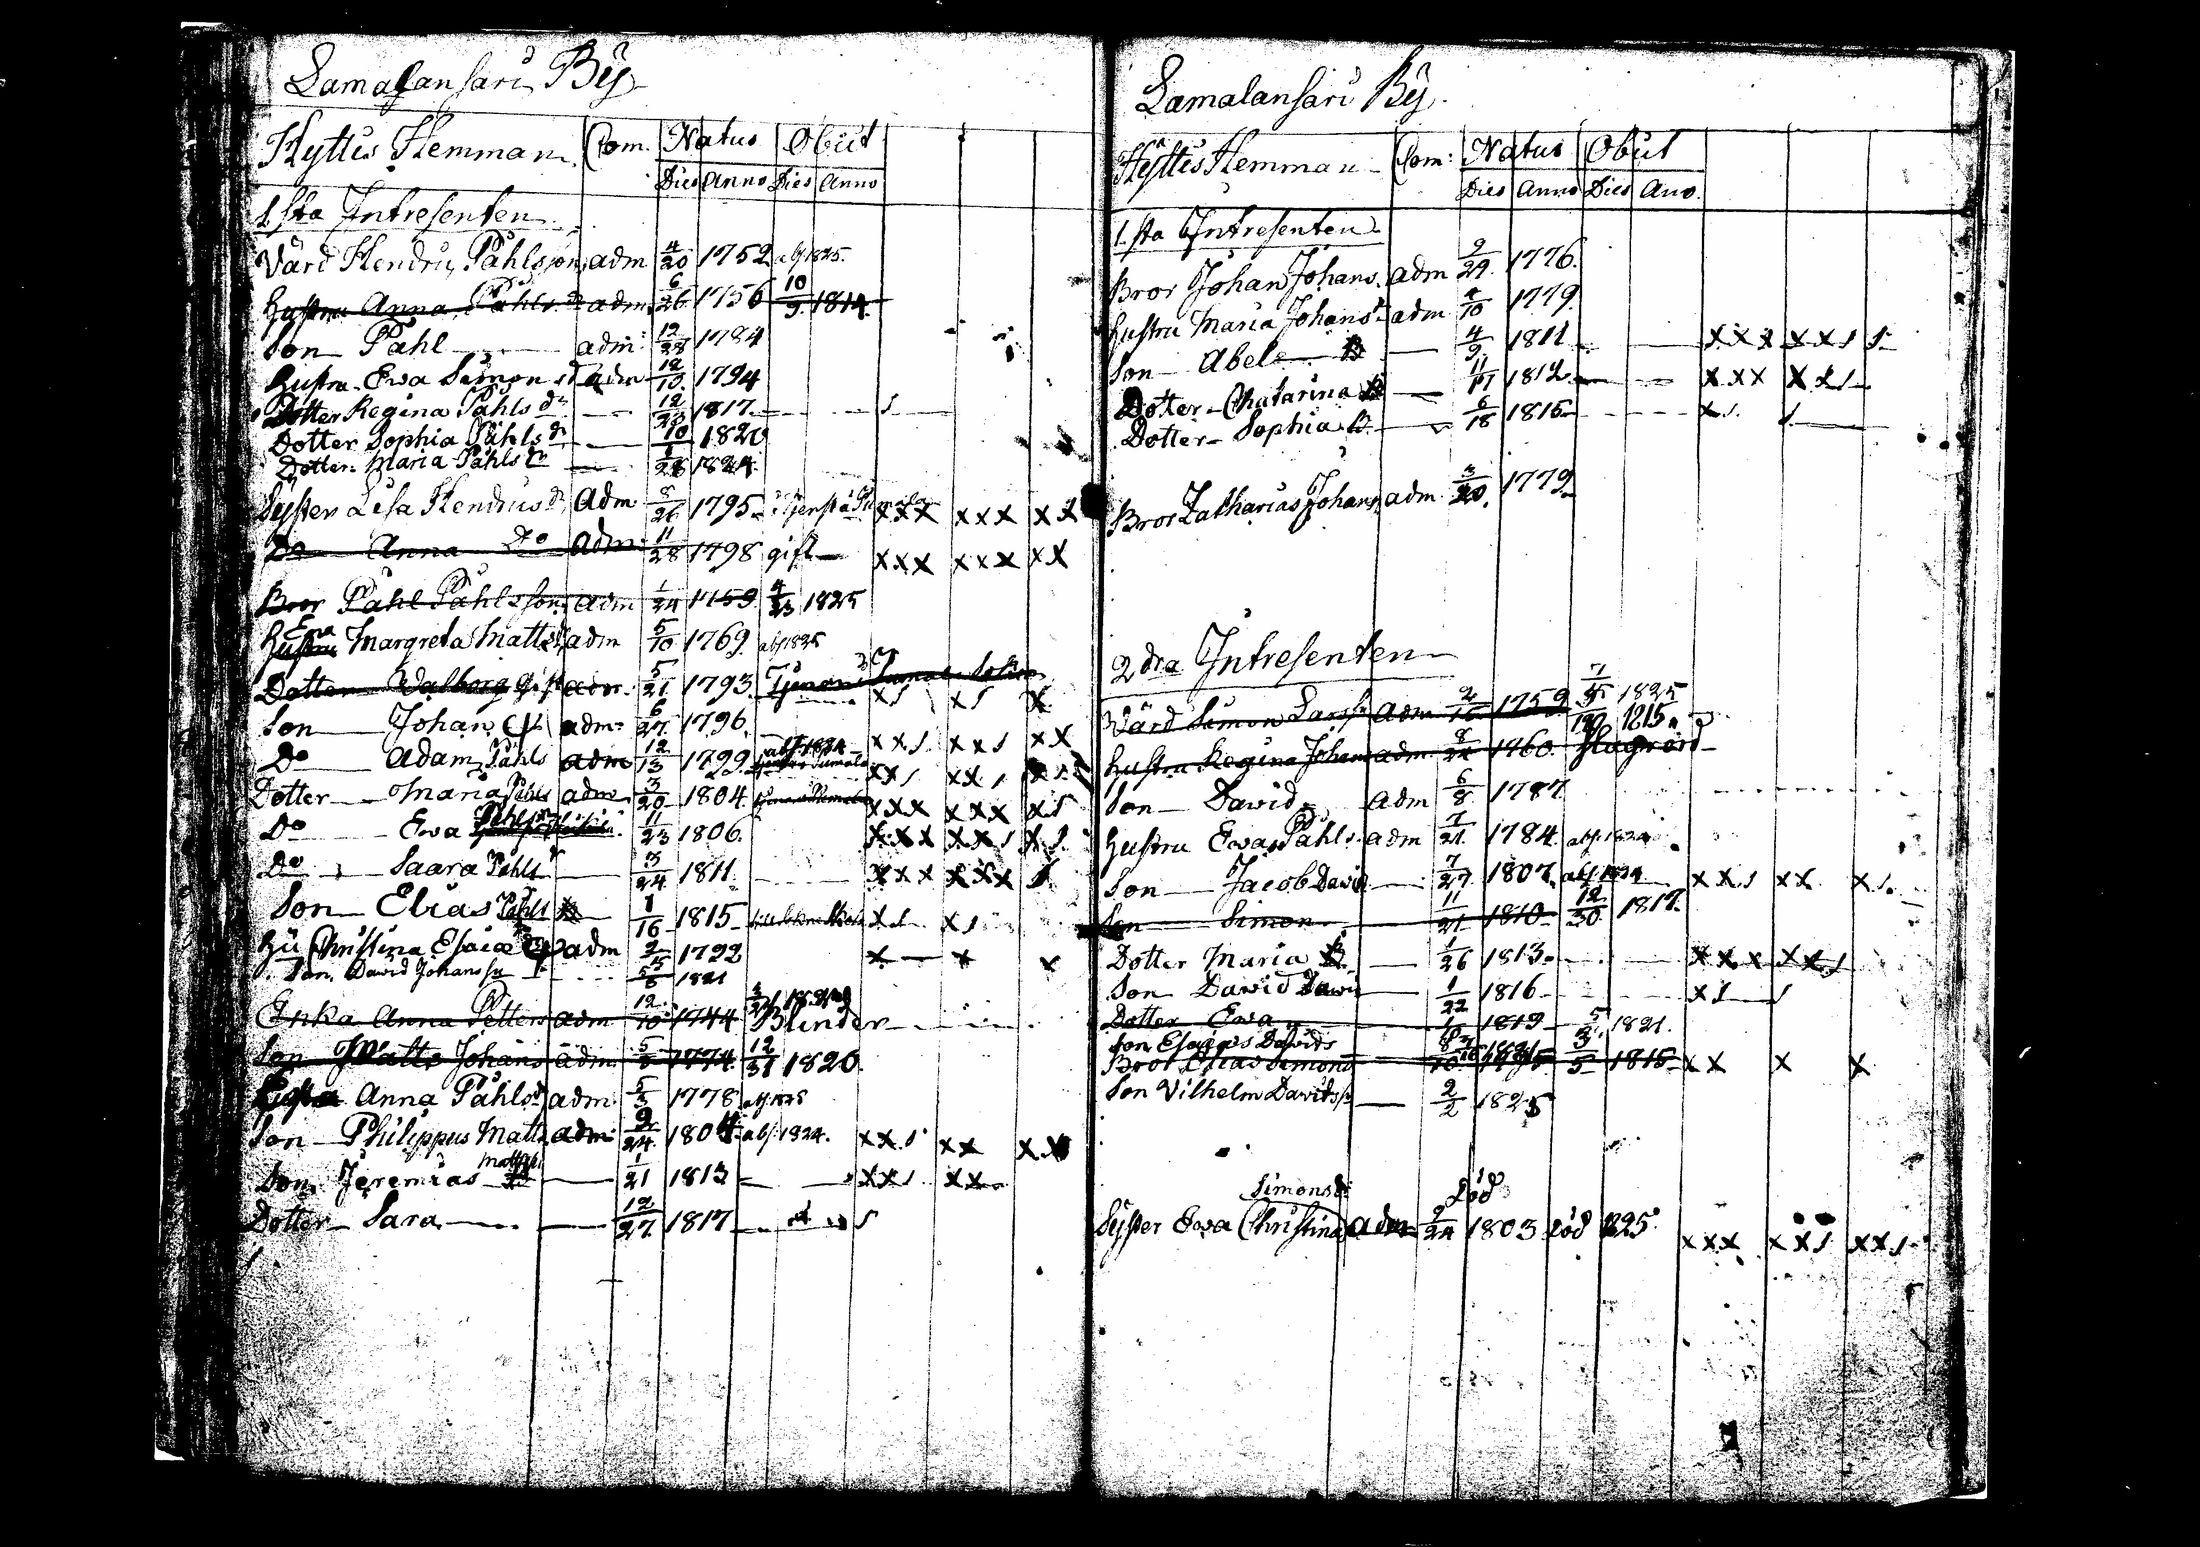 Lamalansari By
Hyttis Hemman Com. Natus Obiit
Dies Anno Dies Anno
1sta Intresenten
Värd Hendric Påhlsson adm 4/20 1752 abs 1825.
Hustru Anna Påhls dr adm 6/26 1756 10/9 1814
Son Påhl adm 12/28 1784
Hustru Ewa Simons dr adm 12/10 1794
Dotter Regina Påhls dr 12/23 1817 1
Dotter Sophia Påhls dr 10 1820
Dotter Maria Påhls dr 1824
Syster Lisa Hendricsdr adm 8/26 1795 xxx xxx xx
Do Anna Do adm 11/28 1798 gift xxx xxx xx
Bror Påhl Påhlsson adm 1/24 1759 4/23 1825
Enka Hustru Margreta Mattsdr adm 5/10 1769 abs 1825
Dotter Walborg Gift adm 5/21 1793 x1 x1 x
Son Johan adm 6/27 1796 xx1 xx1 xx
Do Adam Påhls adm 12/13 1799 abs 1824 xx1 xx1
Dotter Maria Påhls adm 3/20 1804 xxx xxx x1
Do Ewa Påhls 11/23 1806 xxx xx1 x1
Do Saara Påhls 3/24 1811 xxx xxx 1
Son Elias Påhls 1/16 1815 x1 x1
Hu Christina Esaiæ adm 2/15 1792 x x x
Son David Johanss 5/6 1821
Enka Anna Petters adm 12/10 1744 Blinder
Son Matts Johans adm 5/8 1774 12/31 1820
Anna Påhlsdr adm 5/3 1778 abs 1825
Son Philippus Matts adm 9/24 1804 abs 1824. xx1 xx xx
Son Jeremias Matts 1/21 1813 xx1 xx
Dotter Sara 12/27 1817 1
Lamalansari By.
Hyttis Hemman Com: Natus Obiit
Dies Anno Dies Ano.
1sta Intresenten
Bror Johan Johans. adm 9/29 1776.
Hustru Maria Johansdr adm 4/10 1779.
Son Abel B 4/9 1811 xxx xx1 1
Dotter Chatarina B 11/17 1812 xxx xx1
Dotter Sophia B. 6/18 1815 x1 1
Bror Zacharias Johans adm 3/20 1779
2dra Intresenten
Värd Simon Larss adm 2/15 1759 7/5 1825
Hustru Regina Johans adm 8/24 1760 1815
Son David adm 6/8 1787
Hustru Ewa Påhls adm 7/21 1784 abs 1824
Son Jacob David 7/27 1807 abs 1824 xx1 xx x1
Son Simon 11/21 1810 12/30 1817
Dotter Maria B 1/26 1813 xxx xx1
Son David David 1/22 1816 x1 1
Dotter Ewa 1819 5/3 1821
Son Esaias Davids 1821
Bror Elias Simons 3/5 1815 xx x x
Son Vilhelm Davids 2/2 1825
Simonsdr Löd
Syster Ewa Christina adm 9/24 1803 Löd 1825 xxx xx1 xx1